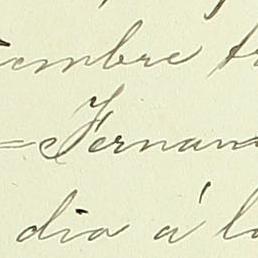 iembre tr
= Fernan
dia á la